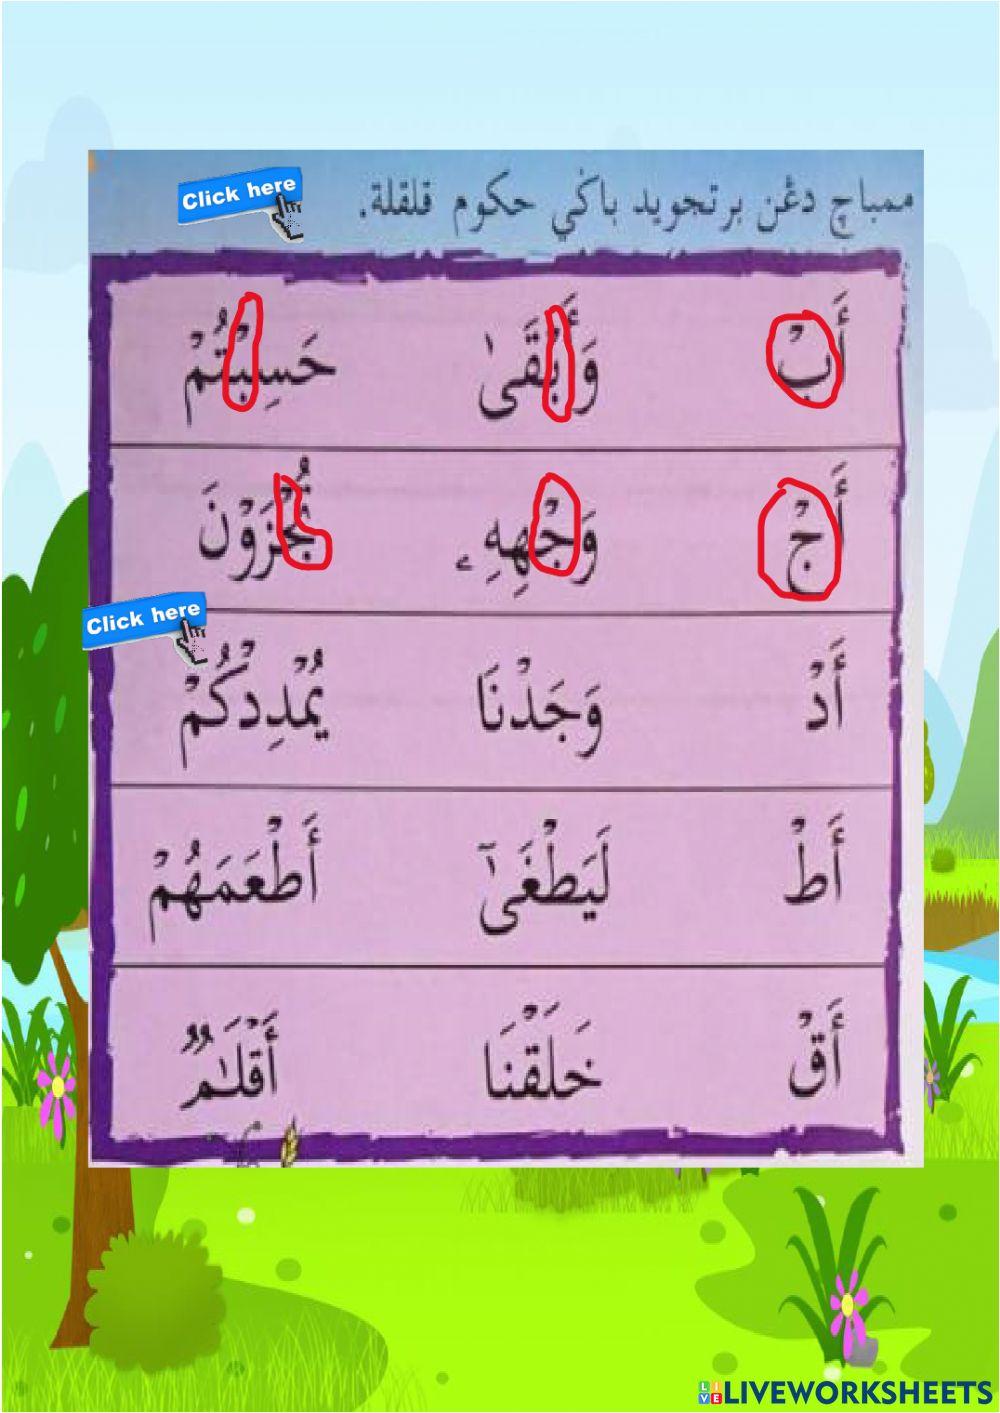 Click here
ممباچ دڠن برتجويد باݢي حكوم قلقلة.
أَبْ وَأَبْقَىٰ حَسِبْتُمْ
أَجْ وَجْهِهِۦ تُجْزَوْنَ
Click here
أَدْ وَجَدْنَا يُمْدِدْكُمْ
أَطْ لَيَطْغَىٰٓ أَطْعَمَهُمْ
أَقْ خَلَقْنَا أَقْلَـٰمٌ
LIVEWORKSHEETS